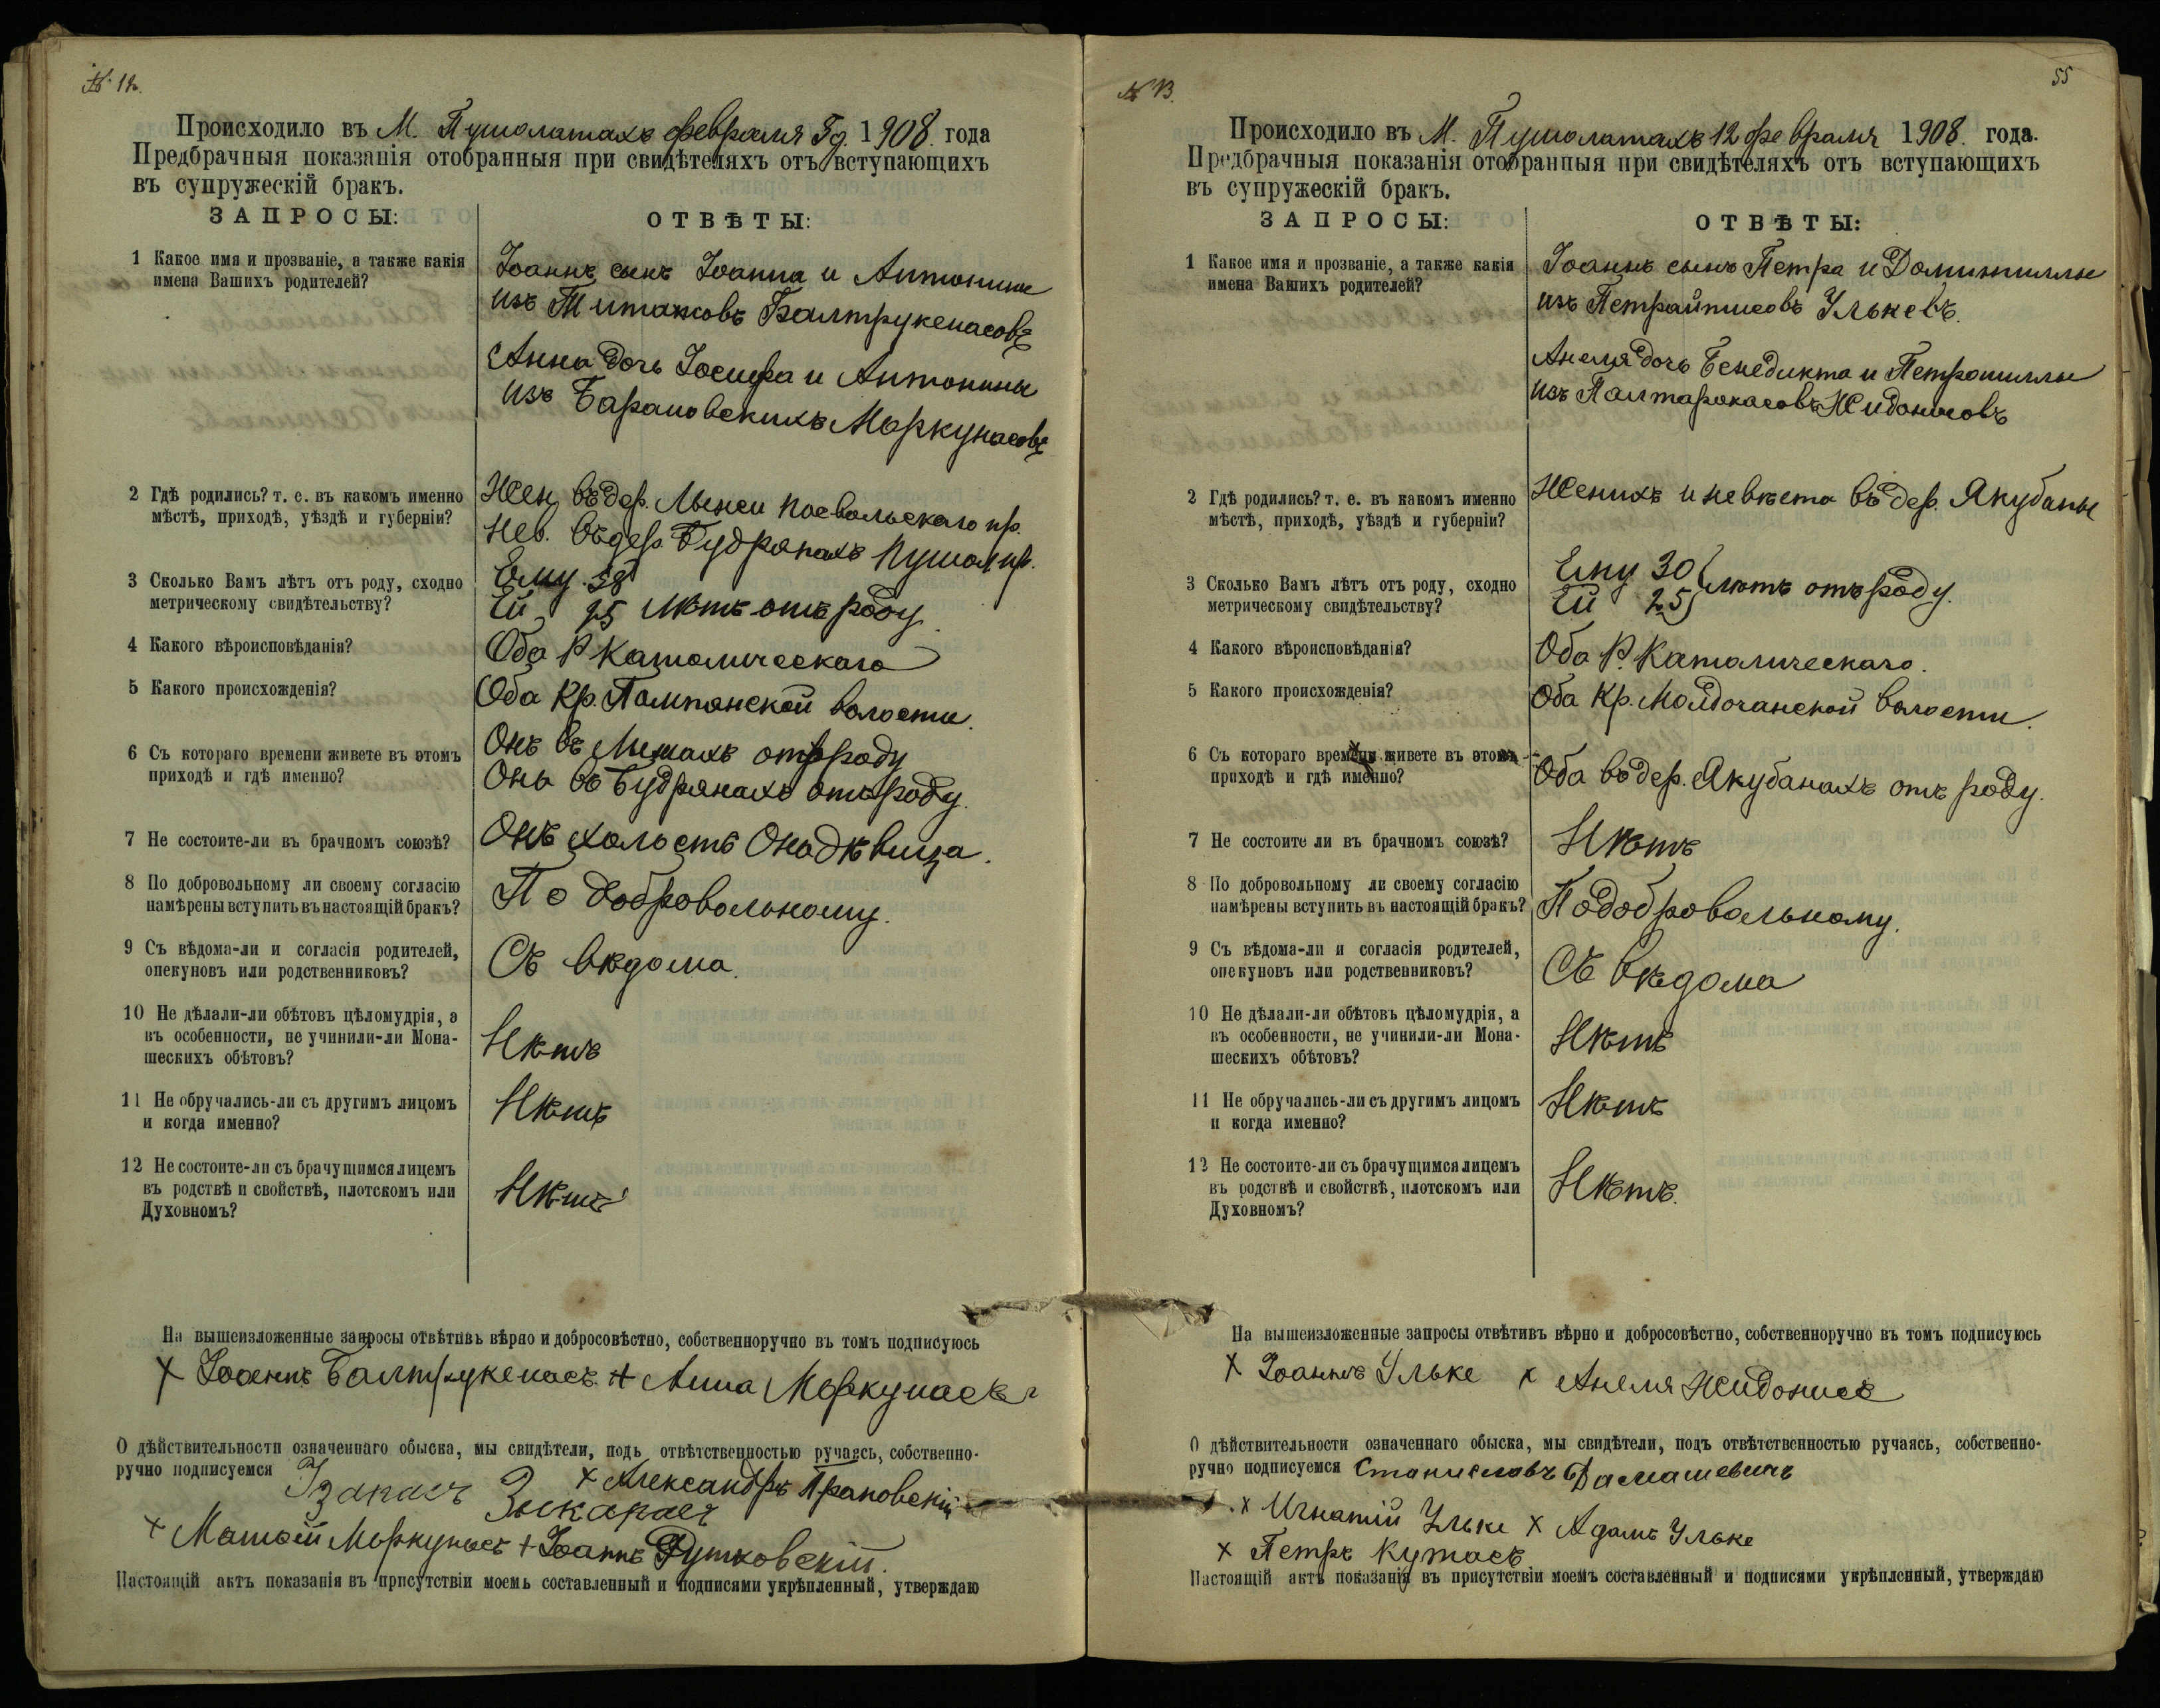 № 12.
Происходило въ М. Пушолатахъ февраля 1908. года
Предбрачныя показанія отобранныя при свидѣтеляхъ отъ вступающихъ
въ супружескій бракъ.
ЗАПРОСЫ:
ОТВѢТЫ:
1 Какое имя и прозваніе, а также какія
имена Вашихъ родителей?
Іоаннъ сынъ Іоанна и Антонины
изъ Балтрукенасовъ
Анна дочь Іосифа и Антонины
изъ Барановскихъ Моркунасовъ
2 Гдѣ родились? т. е. въ какомъ именно
мѣстѣ, приходѣ, уѣздѣ и губерніи?
Жен. въ дер. Поевольскаго пр.
Нев. въ дер. Будрянахъ Пушол. пр.
3 Сколько Вамъ лѣтъ отъ роду, сходно
метрическому свидѣтельству?
Ему 38
Ей 25 лѣтъ отъ роду.
4 Какого вѣроисповѣданія?
Оба Р Католическаго
5 Какого происхожденія?
Оба Кр. Помпянской волости.
6 Съ котораго времени живете въ этомъ
приходѣ и гдѣ именно?
Онъ въ отъ роду
Она въ Будрянахъ отъ роду.
7 Не состоите-ли въ брачномъ союзѣ?
Онъ холостъ Она дѣвица.
8 По добровольному ли своему согласію
намѣрены вступить въ настоящій бракъ?
По добровольному.
9 Съ вѣдома-ли и согласія родителей,
опекуновъ или родственниковъ?
Съ вѣдома.
10 Не дѣлали-ли обѣтовъ цѣломудрія, а
въ особенности, не учинили-ли Мона-
шескихъ обѣтовъ?
Нѣтъ
11 Не обручались-ли съ другимъ лицомъ
и когда именно?
Нѣтъ
12 Не состоите-ли съ брачущимся лицемъ
въ родствѣ и свойствѣ, плотскомъ или
Духовномъ?
Нѣтъ
На вышеизложенные запросы отвѣтивъ вѣрно и добросовѣстно, собственноручно въ томъ подписуюсь
+ Іоаннъ Балтрукенасъ. + Анна Моркунасъ
О дѣйствительности означеннаго обыска, мы свидѣтели, подъ отвѣтственностью ручаясь, собственно-
ручно подписуемся
+ Александръ
+ Матѳій Моркунасъ + Іоаннъ Рутковскій.
Настоящій актъ показанія въ присутствіи моемъ составленный и подписями укрѣпленный, утверждаю
№ 13.
55
Происходило въ М. Пушолатахъ 12 февраля 1908. года.
Предбрачныя показанія отобранныя при свидѣтеляхъ отъ вступающихъ
въ супружескій бракъ.
ЗАПРОСЫ:
ОТВѢТЫ:
1 Какое имя и прозваніе, а также какія
имена Вашихъ родителей?
Іоаннъ сынъ Петра и Домициллы
изъ Петрайтисовъ Улькевъ.
Анеля дочь Бенедикта и Петрониллы
изъ Палтарокасовъ Жидонисовъ
2 Гдѣ родились? т. е. въ какомъ именно
мѣстѣ, приходѣ, уѣздѣ и губерніи?
Женихъ и невѣста въ дер. Якубаны
3 Сколько Вамъ лѣтъ отъ роду, сходно
метрическому свидѣтельству?
Ему 30
Ей 25 лѣтъ отъ роду.
4 Какого вѣроисповѣданія?
Оба Р. Католическаго.
5 Какого происхожденія?
Оба Кр. волости
6 Съ котораго времени живете въ этомъ
приходѣ и гдѣ именно?
Оба въ дер. Якубанахъ отъ роду.
7 Не состоите ли въ брачномъ союзѣ?
Нѣтъ
8 По добровольному ли своему согласію
намѣрены вступить въ настоящій бракъ?
По добровольному.
9 Съ вѣдома-ли и согласія родителей,
опекуновъ или родственниковъ?
Съ вѣдома
10 Не дѣлали-ли обѣтовъ цѣломудрія, а
въ особенности, не учинили-ли Мона-
шескихъ обѣтовъ?
Нѣтъ
11 Не обручались-ли съ другимъ лицомъ
и когда именно?
Нѣтъ
12 Не состоите-ли съ брачущимся лицемъ
въ родствѣ и свойствѣ, плотскомъ или
Духовномъ?
Нѣтъ.
На вышеизложенные запросы отвѣтивъ вѣрно и добросовѣстно, собственноручно въ томъ подписуюсь
+ Іоаннъ Ульке + Анеля Жидонисъ
О дѣйствительности означеннаго обыска, мы свидѣтели, подъ отвѣтственностью ручаясь, собственно-
ручно подписуемся Станиславъ Дамашевичъ
+ Игнатій Ульке + Адамъ Ульке
+ Петръ Кутасъ
Настоящій актъ показанія въ присутствіи моемъ составленный и подписями укрѣпленный, утверждаю